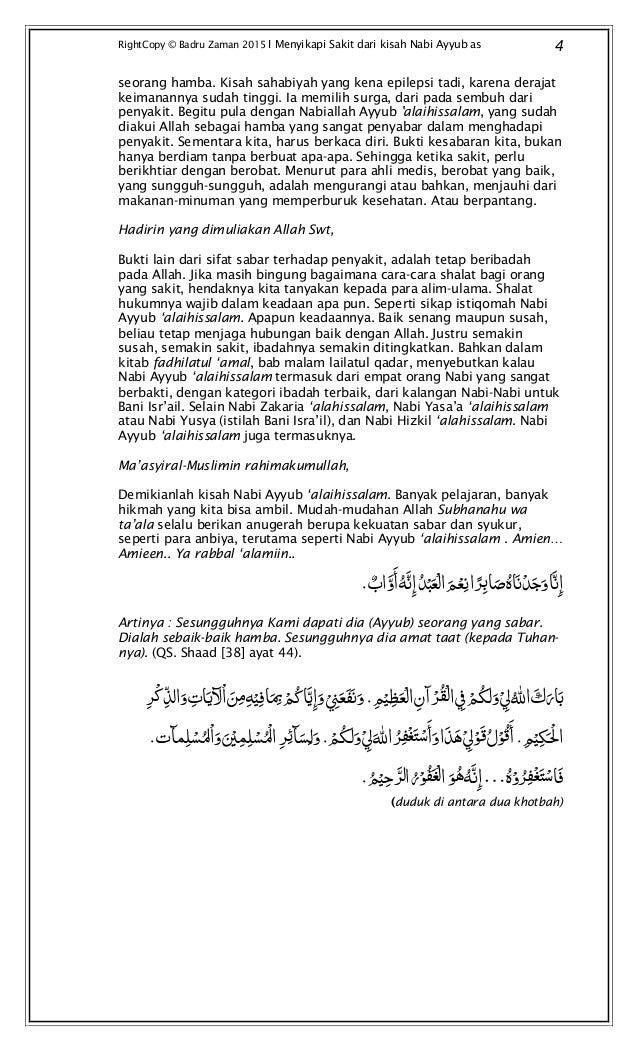 RightCopy © Badru Zaman 2015 I Menyikapi Sakit dari kisah Nabi Ayyub as 4
seorang hamba. Kisah sahabiyah yang kena epilepsi tadi, karena derajat
keimanannya sudah tinggi. Ia memilih surga, dari pada sembuh dari
penyakit. Begitu pula dengan Nabiallah Ayyub 'alaihissalam, yang sudah
diakui Allah sebagai hamba yang sangat penyabar dalam menghadapi
penyakit. Sementara kita, harus berkaca diri. Bukti kesabaran kita, bukan
hanya berdiam tanpa berbuat apa-apa. Sehingga ketika sakit, perlu
berikhtiar dengan berobat. Menurut para ahli medis, berobat yang baik,
yang sungguh-sungguh, adalah mengurangi atau bahkan, menjauhi dari
makanan-minuman yang memperburuk kesehatan. Atau berpantang.
Hadirin yang dimuliakan Allah Swt,
Bukti lain dari sifat sabar terhadap penyakit, adalah tetap beribadah
pada Allah. Jika masih bingung bagaimana cara-cara shalat bagi orang
yang sakit, hendaknya kita tanyakan kepada para alim-ulama. Shalat
hukumnya wajib dalam keadaan apa pun. Seperti sikap istiqomah Nabi
Ayyub ‘alaihissalam. Apapun keadaannya. Baik senang maupun susah,
beliau tetap menjaga hubungan baik dengan Allah. Justru semakin
susah, semakin sakit, ibadahnya semakin ditingkatkan. Bahkan dalam
kitab fadhilatul ‘amal, bab malam lailatul qadar, menyebutkan kalau
Nabi Ayyub ‘alaihissalam termasuk dari empat orang Nabi yang sangat
berbakti, dengan kategori ibadah terbaik, dari kalangan Nabi-Nabi untuk
Bani Isr’ail. Selain Nabi Zakaria ‘alahissalam, Nabi Yasa’a ‘alaihissalam
atau Nabi Yusya (istilah Bani Isra’il), dan Nabi Hizkil ‘alahissalam. Nabi
Ayyub ‘alaihissalam juga termasuknya.
Ma’asyiral-Muslimin rahimakumullah,
Demikianlah kisah Nabi Ayyub ‘alaihissalam. Banyak pelajaran, banyak
hikmah yang kita bisa ambil. Mudah-mudahan Allah Subhanahu wa
ta’ala selalu berikan anugerah berupa kekuatan sabar dan syukur,
seperti para anbiya, terutama seperti Nabi Ayyub ‘alaihissalam . Amien…
Amieen.. Ya rabbal ‘alamiin..
إِنَّا وَجَدْنَاهُ صَابِرًا نِعْمَ الْعَبْدُ إِنَّهُ أَوَّابٌ .
Artinya : Sesungguhnya Kami dapati dia (Ayyub) seorang yang sabar.
Dialah sebaik-baik hamba. Sesungguhnya dia amat taat (kepada Tuhan-
nya). (QS. Shaad [38] ayat 44).
بَارَكَ اللهُ لِيْ وَلَكُمْ فِي الْقُرْآنِ الْعَظِيْمِ . وَنَفَعَنِيْ وَإِيَّاكُمْ بِمَا فِيْهِ مِنَ الْآيَاتِ وَالذِّكْرِ
الْحَكِيْمِ . أَقُوْلُ قَوْلِيْ هَذَا وَأَسْتَغْفِرُ اللهَ لِيْ وَلَكُمْ . وَلِسَآئِرِ الْمُسْلِمِيْنَ وَالْمُسْلِمَآت .
فَاسْتَغْفِرُوْهُ ... إِنَّهُ هُوَ الْغَفُوْرُ الرَّحِيْمُ .
(duduk di antara dua khotbah)